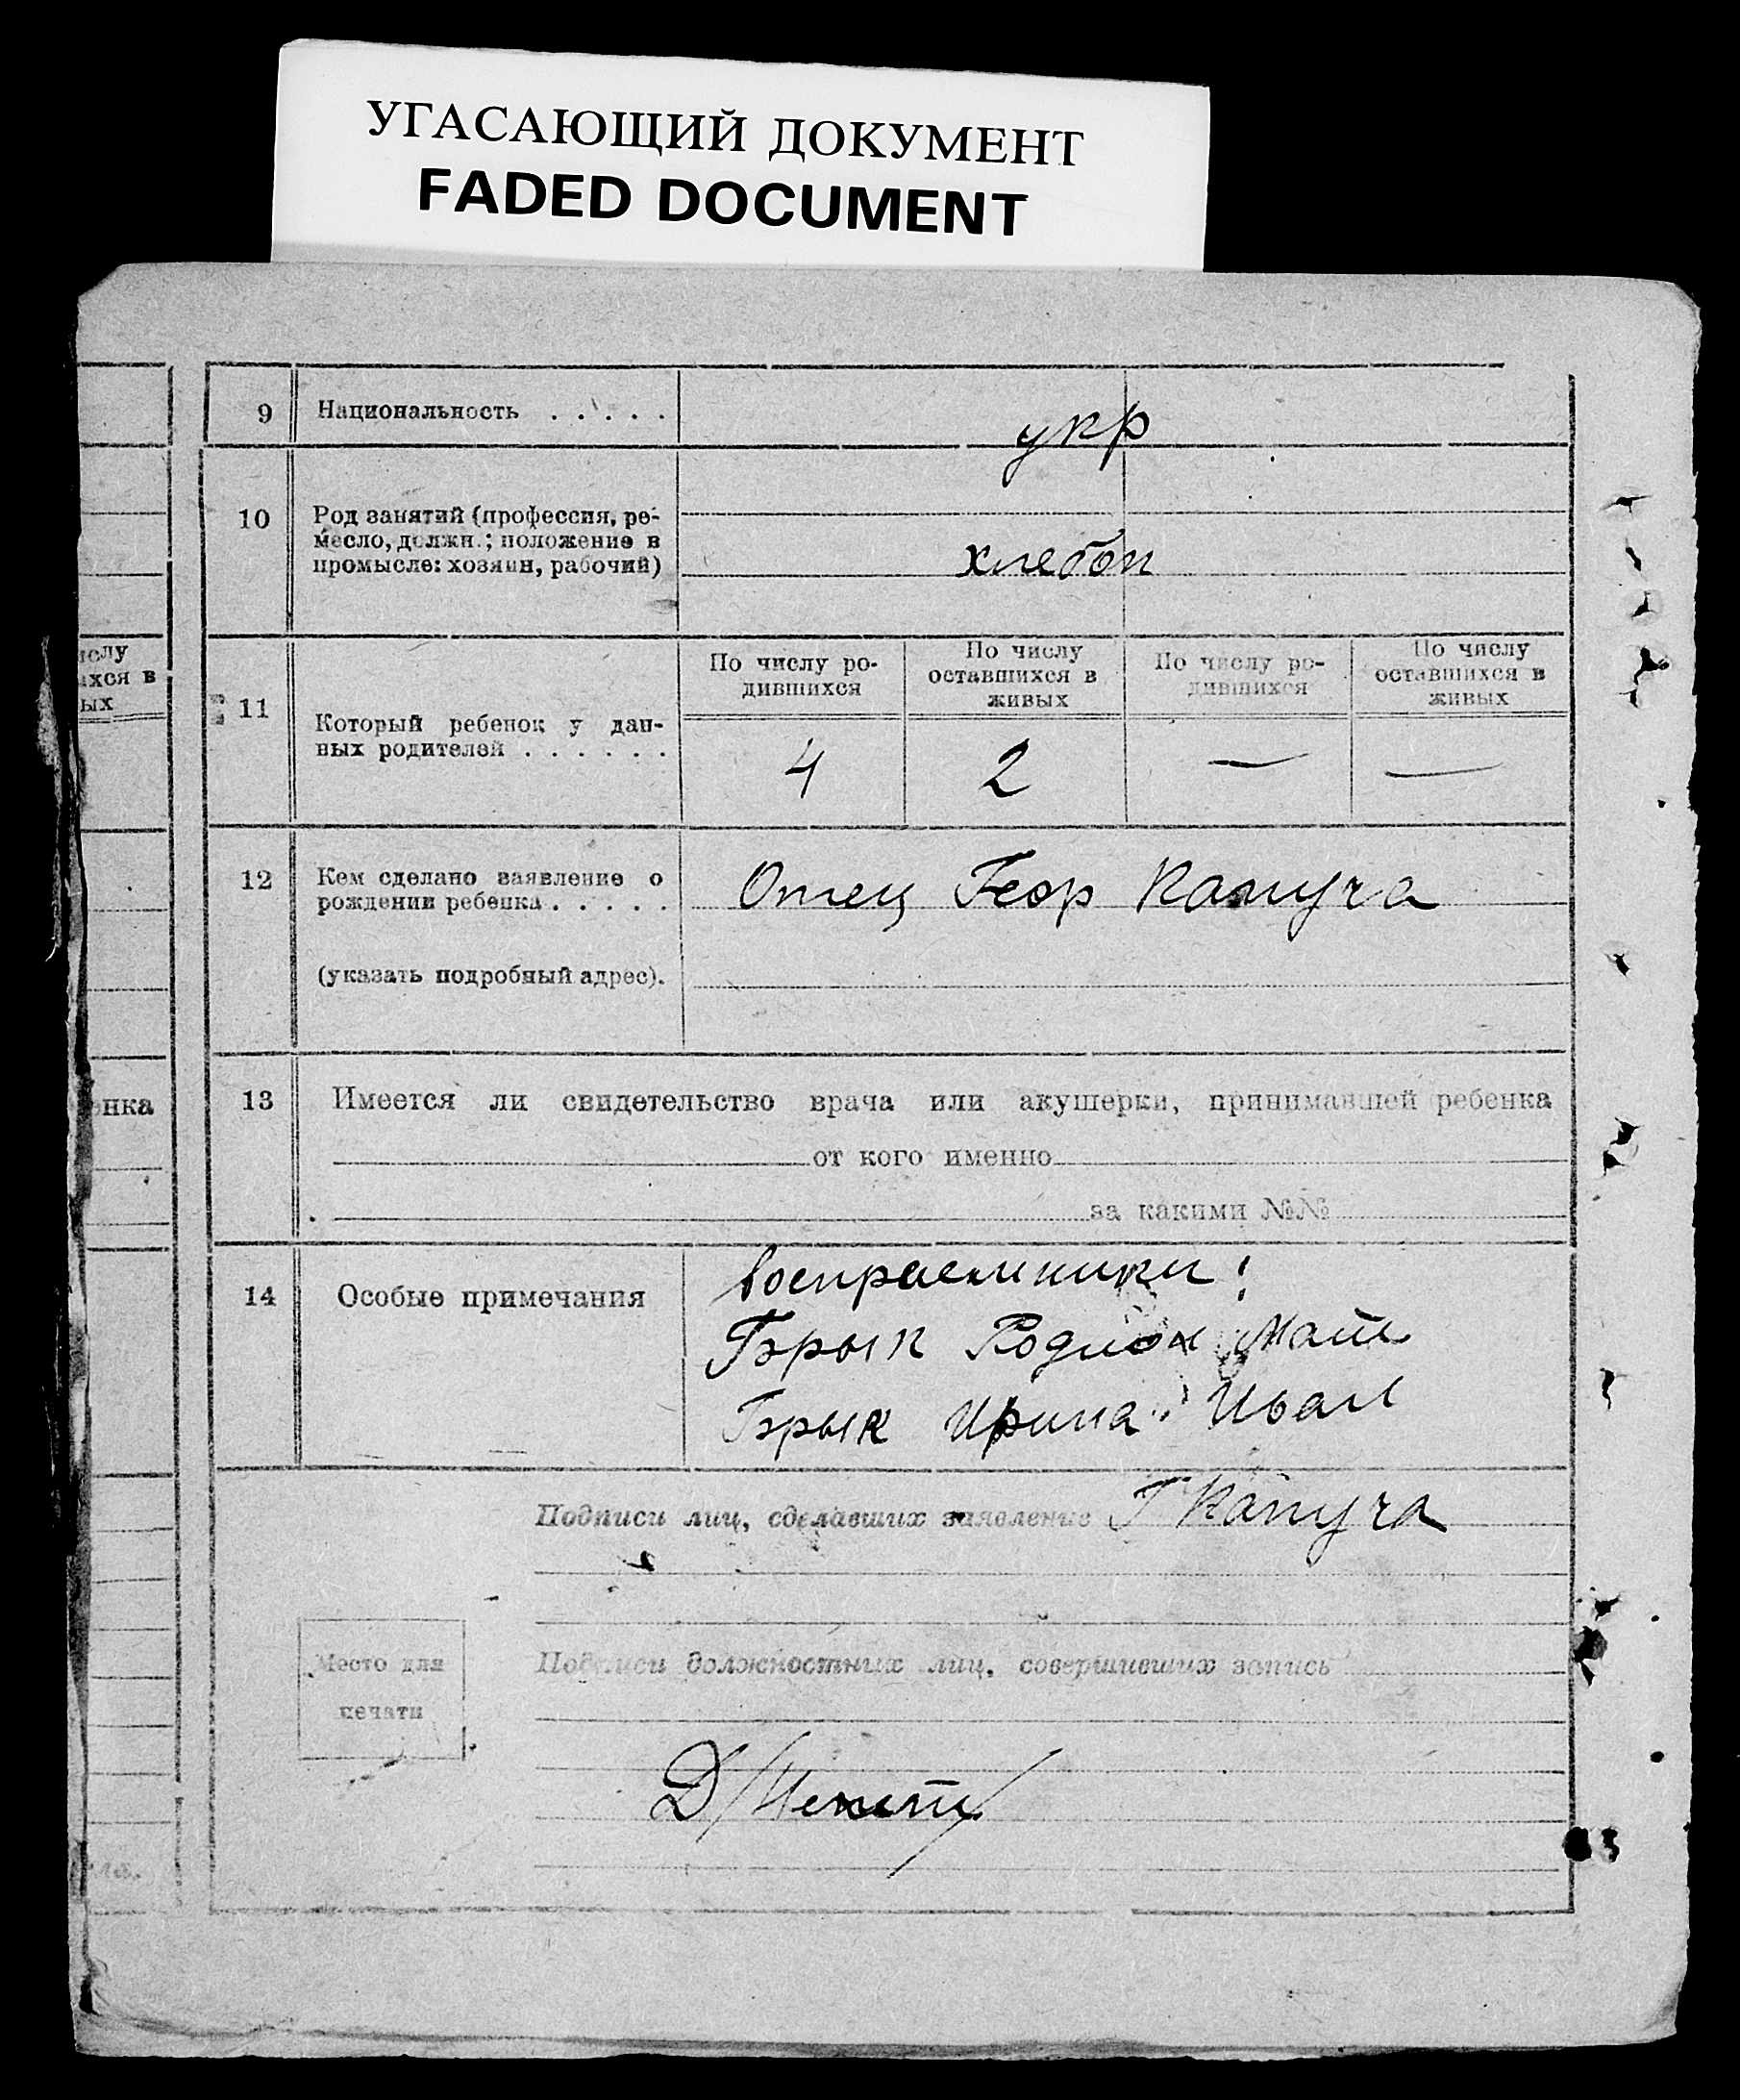 УГАСАЮЩИЙ ДОКУМЕНТ
FADED DOCUMENT
9 Национальность . . . . . укр
10 Род занятий (профессия, ре-
месло, должн.; положение в
промысле: хозяин, рабочий)
хлебоп
ислу
ихся в
ых
11 Который ребенок у дан-
ных родителей . . . . . .
По числу ро-
дившихся
По числу
оставшихся в
живых
По числу ро-
дившихся
По числу
оставшихся в
живых
4 2 — —
12 Кем сделано заявление о
рождении ребенка . . . . .
(указать подробный адрес).
Отец Геор Капуча
енка
13 Имеется ли свидетельство врача или акушерки, принимавшей ребенка
от кого именно
за какими №№
14 Особые примечания
Воспраемники:
Родион
Ирина Иван
Подписи лиц, сделавших заявление Г Капуча
Место для
печати
Подписи должностных лиц, совершивших запись